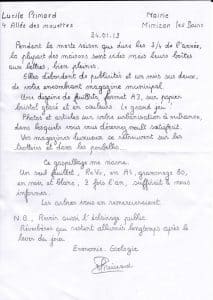 Lucile Primard Mairie
4. Allée des mouettes Mimizan les Bains
24.01.13
Pendant la morte saison qui dure les 3/4 de l'année,
la plupart des maisons sont vides mais leurs boîtes
aux lettres, bien pleines.
Elles débordent de publicités et un mois sur deux, de
votre encombrant magazine municipal.
Une dizaine de feuillets format A3, sur papier
bristol glacé et en couleurs. Le grand jeu !
Photos et articles sur notre urbanisation à outrance,
dans lesquels vous vous décernez moult satisfecit.
Vos magazines luxueux se retrouvent sur les
trottoirs et dans les poubelles.
Ce gaspillage me navre.
Un seul feuillet, Re Vo, en A4, grammage 80,
en noir et blanc, 2 fois l'an, suffirait à nous
informer.
Les arbres vous en remercieraient.
N.B. Revoir aussi l'éclairage public.
Réverbères qui restent allumés longtemps après le
lever du jour.
Economie. Ecologie
Primard